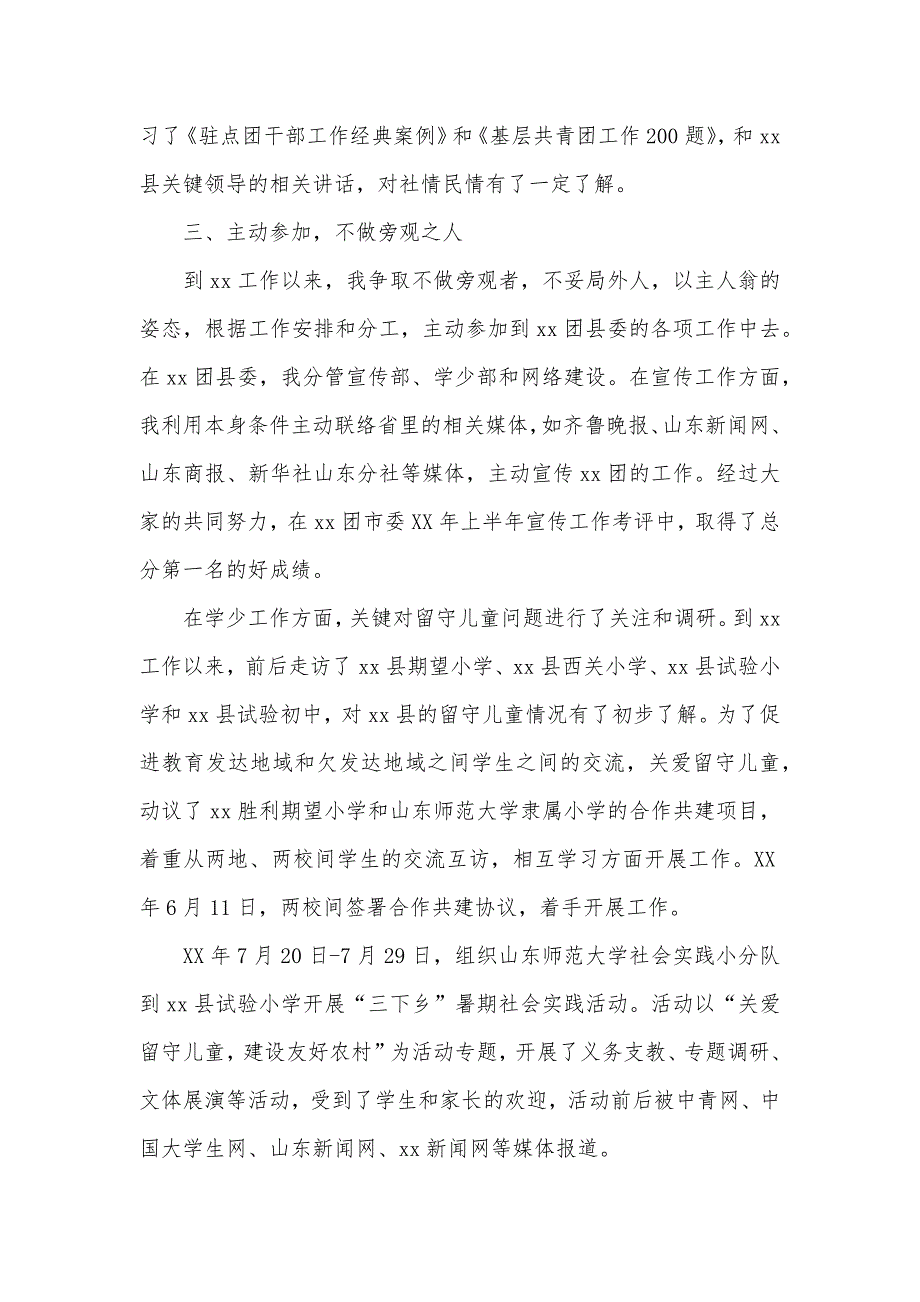 习了《驻点团干部工作经典案例》和《基层共青团工作200题》，和xx
县关键领导的相关讲话，对社情民情有了一定了解。
三、主动参加，不做旁观之人
到xx工作以来，我争取不做旁观者，不妥局外人，以主人翁的
姿态，根据工作安排和分工，主动参加到xx团县委的各项工作中去。
在xx团县委，我分管宣传部、学少部和网络建设。在宣传工作方面，
我利用本身条件主动联络省里的相关媒体，如齐鲁晚报、山东新闻网、
山东商报、新华社山东分社等媒体，主动宣传xx团的工作。经过大
家的共同努力，在xx团市委XX年上半年宣传工作考评中，取得了总
分第一名的好成绩。
在学少工作方面，关键对留守儿童问题进行了关注和调研。到xx
工作以来，前后走访了xx县期望小学、xx县西关小学、xx县试验小
学和xx县试验初中，对xx县的留守儿童情况有了初步了解。为了促
进教育发达地域和欠发达地域之间学生之间的交流，关爱留守儿童，
动议了xx胜利期望小学和山东师范大学隶属小学的合作共建项目，
着重从两地、两校间学生的交流互访，相互学习方面开展工作。XX
年6月11日，两校间签署合作共建协议，着手开展工作。
XX年7月20日-7月29日，组织山东师范大学社会实践小分队
到xx县试验小学开展“三下乡”暑期社会实践活动。活动以“关爱
留守儿童，建设友好农村”为活动专题，开展了义务支教、专题调研、
文体展演等活动，受到了学生和家长的欢迎，活动前后被中青网、中
国大学生网、山东新闻网、xx新闻网等媒体报道。